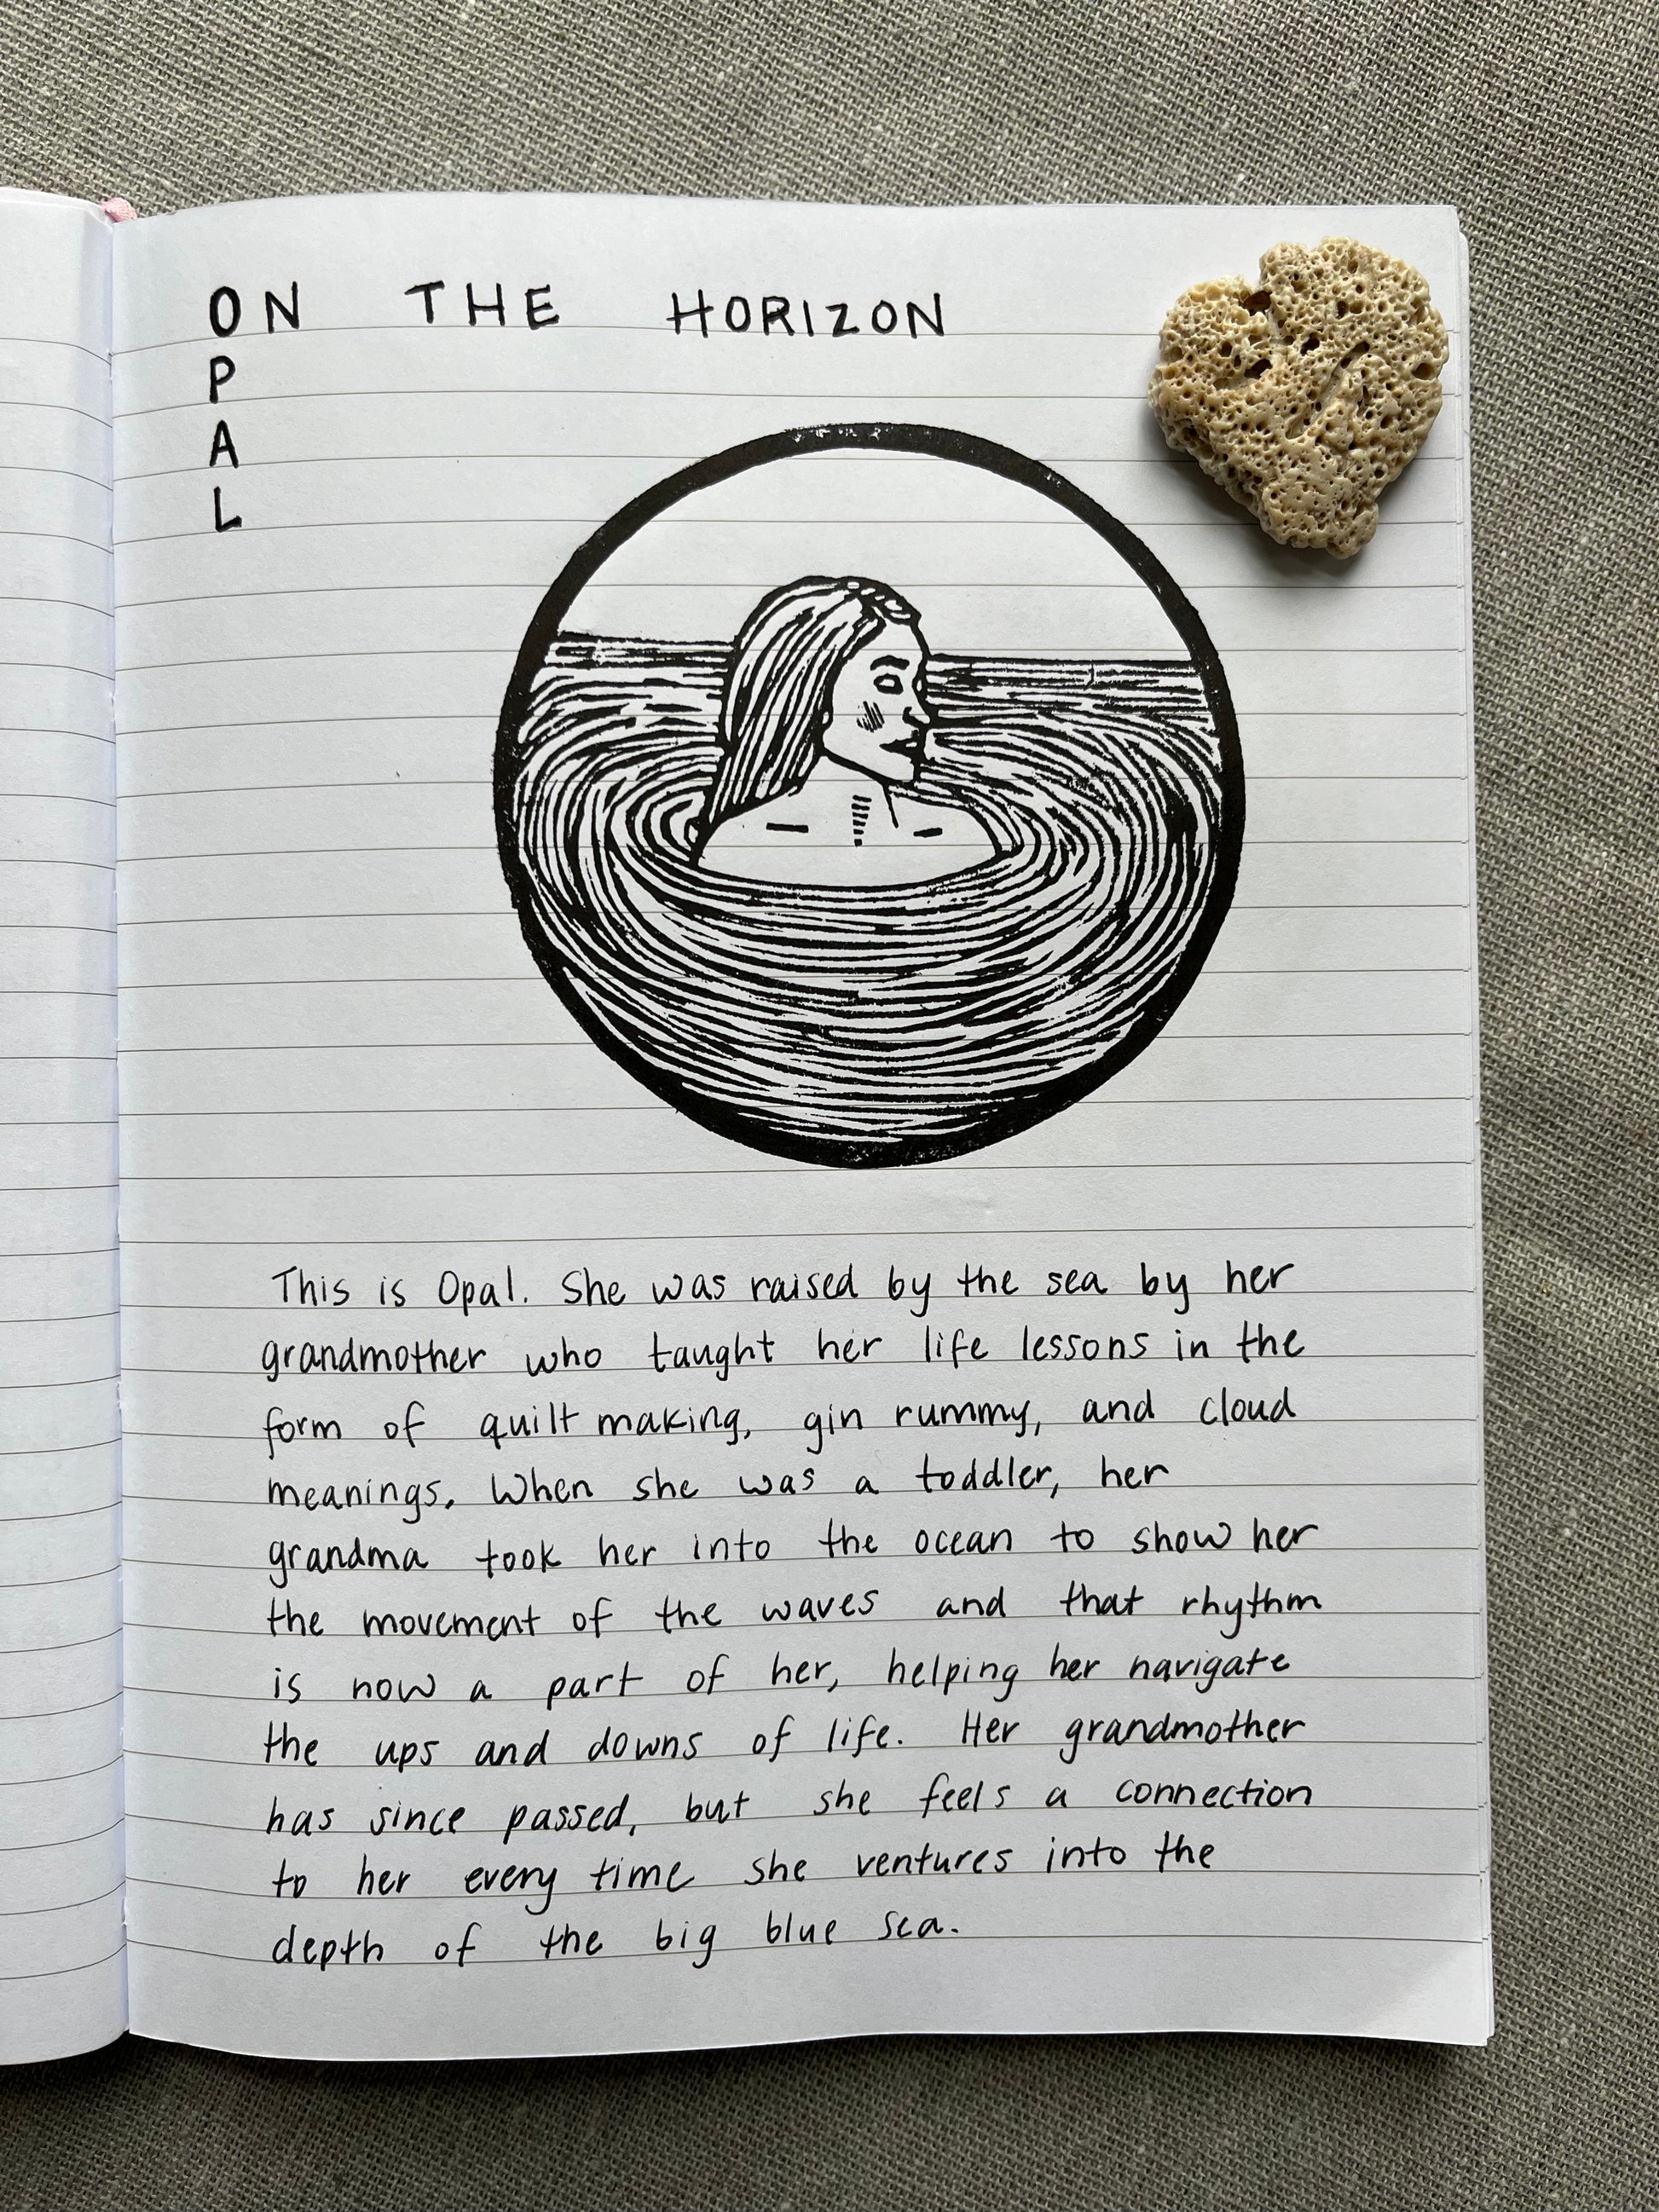 ON THE HORIZON
P
A
L
This is Opal. She was raised by the sea by her
grandmother who taught her life lessons in the
form of quilt making, gin rummy, and cloud
meanings. When she was a toddler, her
grandma took her into the ocean to show her
the movement of the waves and that rhythm
is now a part of her, helping her navigate
the ups and downs of life. Her grandmother
has since passed, but she feels a connection
to her every time she ventures into the
depth of the big blue sea.